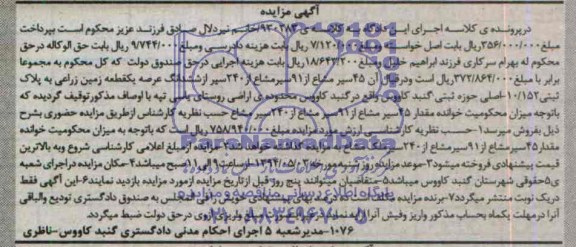 آگهی مزایده
درپرونده ی کلاسه اجرای این دادگاه و کلاسه ی خانم نیردلال صادق فرزند عزیز محکوم است بپرداخت
مبلغ ۳۵۶/۰۰۰/۰۰۰ ریال بابت اصل خواسته ومبلغ ۷/۱۲۰/۰۰۰ ریال بابت هزینه دادرسی ومبلغ ۹/۷۴۴/۰۰۰ ریال بابت حق الوکاله درحق
محکوم له بهرام سرکاری فرزند ابراهیم خلیل ومبلغ ۱۸/۶۴۳/۲۰۰ ریال بابت هزینه اجرایی درحق صندوق دولت که کل محکوم به مجموعا
برابر با مبلغ ۳۷۲/۸۶۴/۰۰۰ ریال است ودرقبال آن ۴۵ سیر مشاع از ۹۱ سیر مشاع از ۲۴۰ سیر ازششدانگ عرصه یکقطعه زمین زراعی به پلاک
ثبتی ۱۰/۱۵۲-اصلی حوزه ثبتی گنبد کاووس واقع در گنبد کاووس محدوده ی اراضی روستای یلمی تپه با اوصاف مذکور توقیف گردیده که
باتوجه میزان محکومیت خوانده مقدار ۴۵ سیر مشاع از ۹۱ سیر مشاع از ۲۴۰ سیر مشاع حسب نظریه کارشناس ازطریق مزایده حضوری بشرح
ذیل بفروش میرسد ۱-حسب نظریه کارشناسی ارزش مورد مزایده مبلغ ۷۵۸/۹۴۰/۰۰۰ ریال است که باتوجه به میزان محکومیت خوانده
مقدار ۴۵ سیر مشاع از ۹۱ سیر مشاع از ۲۴۰ سیر مزایده از مبلغ اعلامی کارشناسی شروع وبه بالاترین
قیمت پیشنهادی فروخته میشود ۳-موعد مزایده روز شنبه مورخه ۱۳۹۴/۰۵/۰۳ ازساعت ۹ الی ۱۱ صبح میباشد ۴-مکان مزایده دراجرای شعبه
ی حقوقی شهرستان گنبد کاووس میباشد ۵- میتوانند پنج روز قبل ازتاریخ مزایده ازمورد مزایده بازدید نمایند ۶-این آگهی فقط
دریک نوبت منتشر میگردد ۷-برنده مزایده به صندوق دادگستری تودیع والباقی
آنرا درمهلت یکماه بحساب مذکور واریز وفیش آنرا ارائه نماید درحق دولت ضبط میگردد.
۱۰۷۶-مدیر شعبه ۵ اجرای احکام مدنی دادگستری گنبد کاووس-ناظری